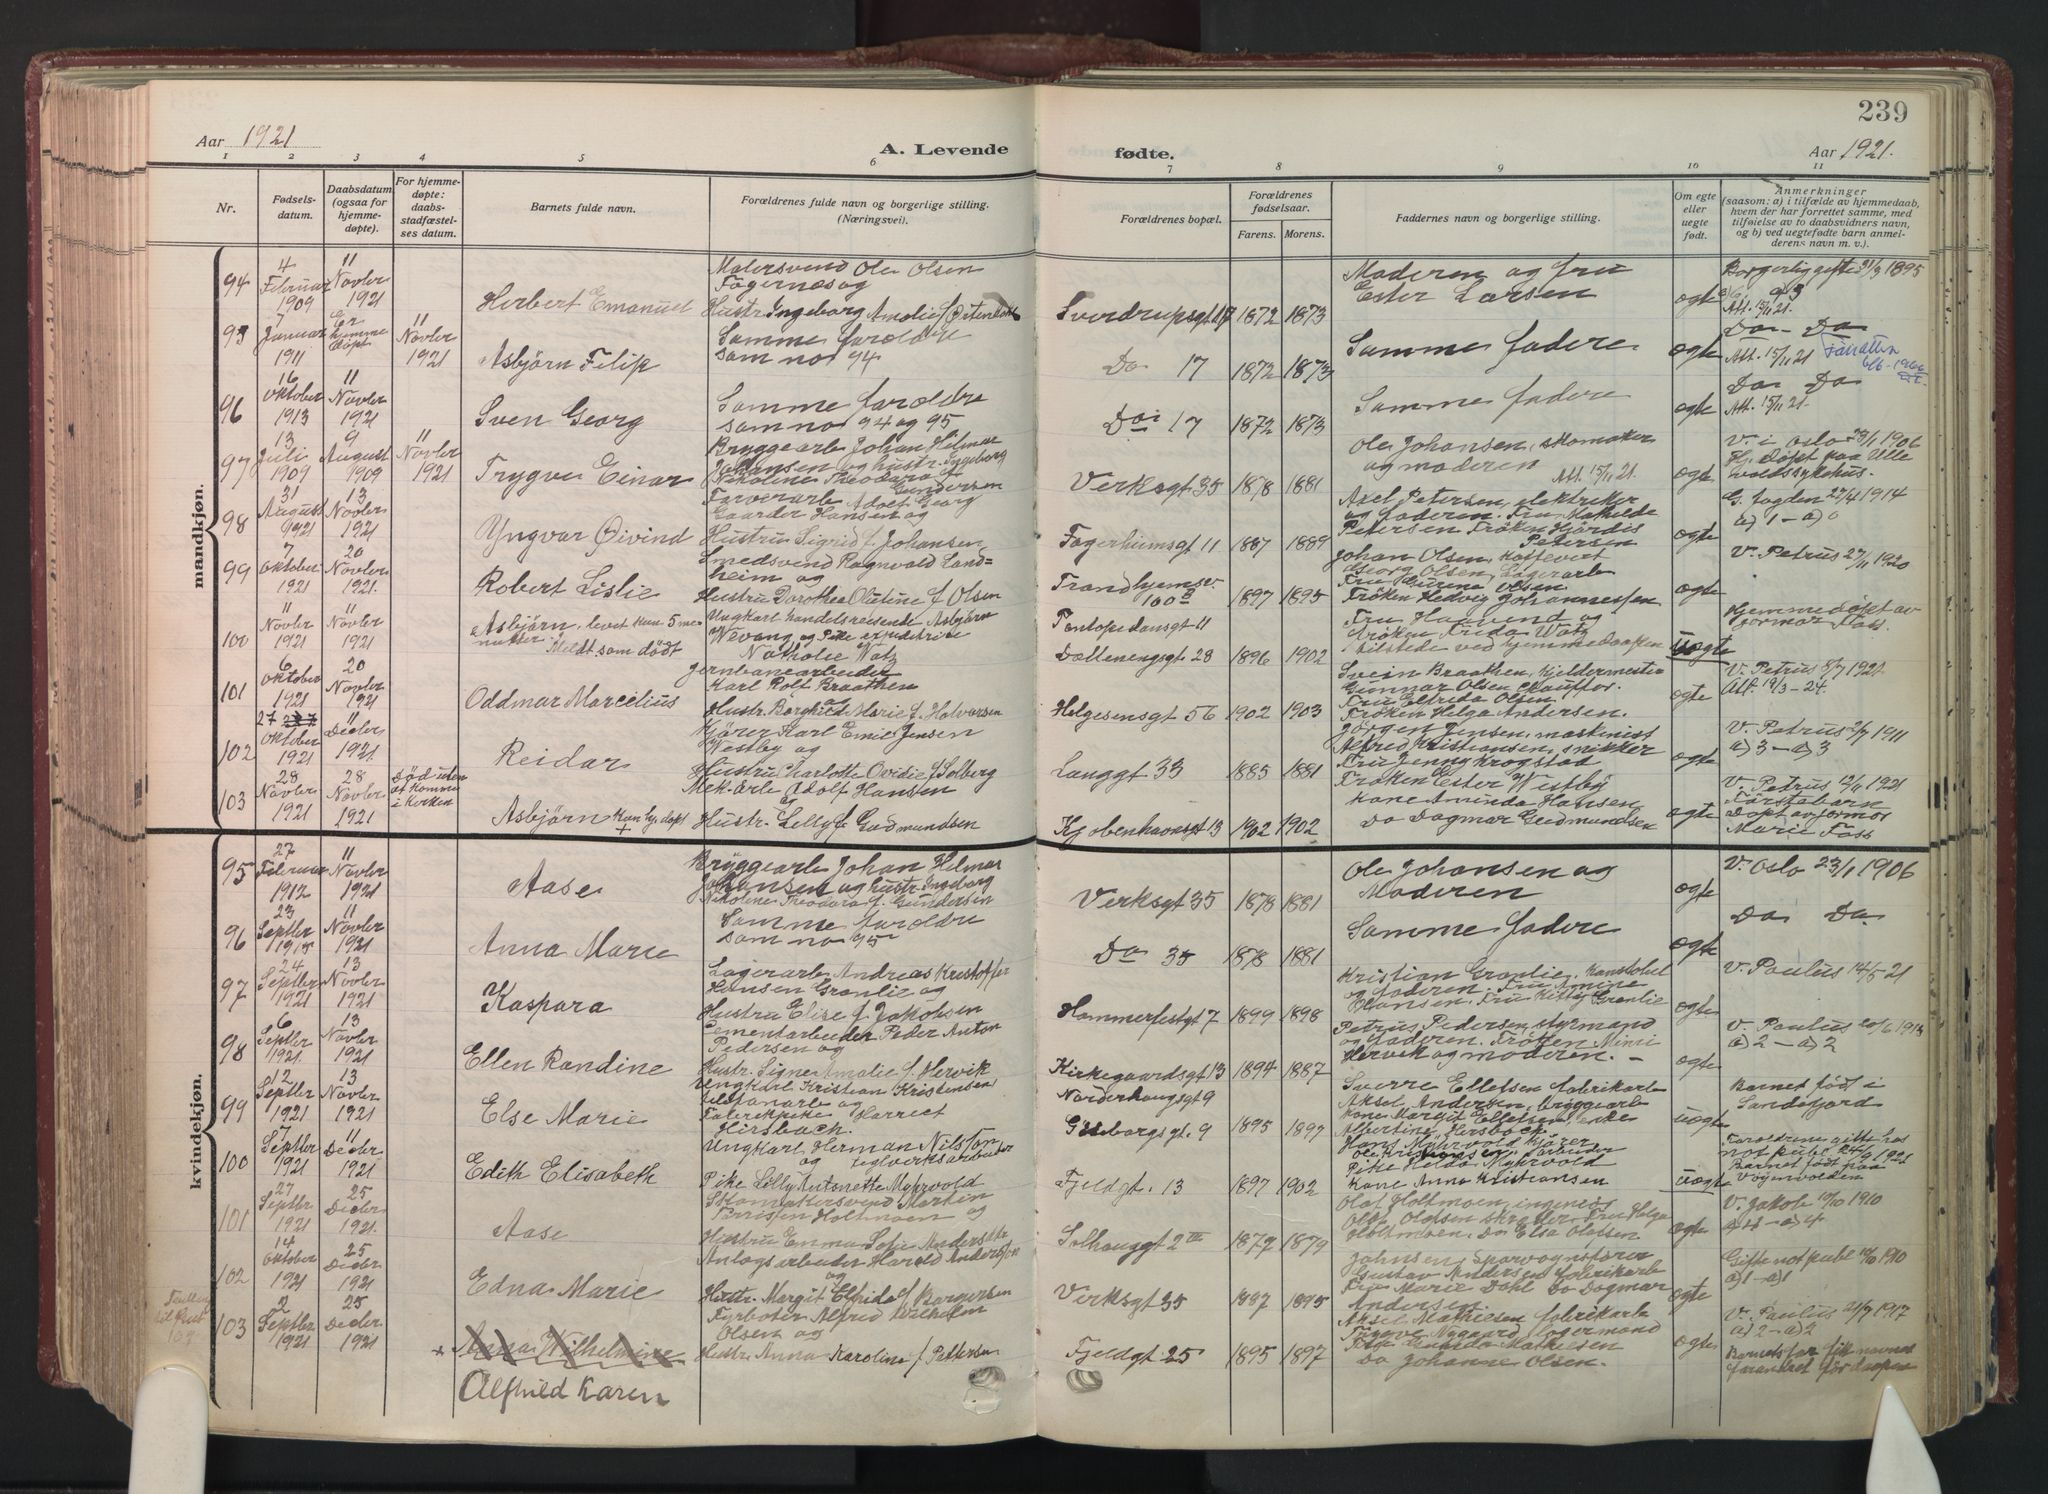 239
Aar 1921
A. Levende
fødte.
Aar 1921.
1 2 3 4 5 6 7 8 9 10 11
Nr.
Fødsels-
datum.
Daabsdatum
(ogsaa for
hjemme-
døpte).
For hjemme-
døpte:
daabs-
stadfæstel-
ses datum.
Barnets fulde navn.
Forældrenes fulde navn og borgerlige stilling.
(Næringsvei).
Forældrenes bopæl.
Forældrenes
fødselsaar.
Farens. Morens.
Faddernes navn og borgerlige stilling.
Om egte
eller
uegte
født.
Anmerkninger
(saasom: a) i tilfælde av hjemmedaab,
hvem der har forrettet samme, med
tilføielse av to daabsvidners navn,
og b) ved uegtefødte barn anmel-
derens navn m. v.).
mandkjøn.
94
4
Februar
1909
11
Novbr
1921
Herbert Emanuel
Malersvend Ole Olsen
Fagernæs og
Hustr. Ingeborg Amalie f.
Sverdrupsgt 17
1872 1873
Moderen og fru
Ester Larsen
ægte
Borgerlig gifte 31/3 1895
Att. 15/11 21.
95
7
Januar
1911
Er
hjemme
døpt
11
Novbr
1921
Asbjörn Filip
Samme foröldre
som no 94
Do 17
1872 1873
Samme fadere
ægte
Do – Do
Att. 15/11 21
96
16
Oktober
1913
11
Novbr
1921
Sven Georg
Samme foroldre
som no 94 og 95
Do 17
1872 1873
Samme fadere
ægte
Do Do
Att. 15/11 21.
97
13
Juli
1909
9
August
1909
11
Novbr
1921
Trygve Einar
Bryggearb. Johan Hilmar
Johansen og hustr. Ingeborg
Nikoline Theodora f.
Gundersen
Verksgt 35
1878 1881
Ole Johansen, skomaker
og moderen
Att. 15/11 21.
ægte
V. i Oslo 23/1 1906
Hj. döpt paa Ulle
voldsykehus.
98
31
August
1921
13
Novbr
1921
Yngvar Øivind
Farverarb. Adolf Georg
Gaarder Hansen og
Hustru Sigrid f. Johansen
Fagerheimsgt 11
1887 1889
Axel Petersen, elektriker
og faderen. Fru Mathilde
Petersen Fröken Hjördis
Petersen
ægte
G. 27/4 1914
a) 1 – a) 0
99
7
Oktober
1921
20
Novbr
1921.
Robert Lislie
Smedsvend Ragnvald Land=
heim og
Hustru Dorothea Olutine f Olsen
Trondhjemsv.
100 B
1897 1895
Johan Olsen,
Georg Olsen, Lagerarb
Fru Olsen
Fröken Hedvig Johannessen
ægte
V. Petrus 27/11 1920
100
11
Novbr
1921
11
Novbr
1921
Asbjörn, levet kun 5 mi-
nutter. Meldt som dödt
Ungkarl handelsreisende Asbjörn
Wevang og Pike expeditrise
Nathalie Watz
Dællenengsgt 28
1896 1902
Fru Haavind og
Fröken Frida Watz
tilstede ved hjemmedaapen
uægte
Hjemmedöpt av
jormor Foss.
101
6
Oktober
1921
20
Novbr
1921
Oddmar Marcelius
Jernbanearbeider
Karl Rolf Braathen
og
Hustr. Borghild Marie f. Halvorsen
Helgesensgt 56
1902 1903
Svein Braathen, kjeldermester
Gunnar Olsen
Fru Elfrida Olsen
Fröken Helga Andersen.
ægte
V. Petrus 8/7 1921.
Att. 19/3 – 24.
102
27
Oktober
1921
11
Decbr
1921.
Reidar
Kjörer Karl Emil Jensen
Westby og
Hustru Charlotte Ovidie f Solberg
Langgt 33
1885 1881
Jörgen Jensen, maskinist
Alfred Kristiansen, snikker
Fru Jenny Krogstad
Fröken Ester Westby
ægte
V. Petrus 2/7 1911
a) 3 – a) 3
103
28
Novbr
1921
28
Novbr
1921
Död uten
at komme
i kirken
Asbjörn kun hj. döpt
Mek. arb. Adolf Hansen
og
Hustr. Lilly f Gudmundsen
Kjøbenhavnsgt 13
1902 1902
Kone Aminda Hansen
Do Dagmar Gudmundsen
ægte
V. Petrus 12/11 1921
Förstebarn
Döpt av jormor
Marie Foss
kvindekjøn.
95
27
Februar
1912
11
Novbr
1921
Aase
Bryggearb Johan Helmar
Johansen og hustr. Ingeborg
Nikoline Theodora f. Gundersen
Verksgt 35
1878 1881
Ole Johansen og
Moderen
ægte
V. Oslo 23/1 1906
96
23
Septbr
1915
11
Novbr
1921
Anna Marie
Samme foroldre
som no 95
Do 35
1878 1881
Samme fadere
ægte
Do Do
97
24
Septbr
1921
13
Novbr
1921
Kaspara
Lagerarb Andreas Kristoffer
Hansen Grønlie og
Hustru Elise f Jakobsen
Hammerfestgt 7
1899 1898
Kristian Grønlie,
og faderen. Fru Amine
Hansen. Fru Kitty Grønlie
ægte
V. Paulus 14/5 21
98
6
Septbr
1921.
13
Novbr
1921
Ellen Randine
Cementarbeider Peder Anton
Pedersen og
Hustr. Signe Amalie f. Hervik
Kirkegaardsgt 13
1894 1887
Petrus Pedersen, styrmand
og faderen. Fröken Mimi
Hervik og moderen. –
ægte
V. Paulus 20/6 1913
a) 2 – a) 2
99
12
Septbr
1921
13
Novbr
1921
Else Marie
Ungkarl Kristian Kristensen
og
Fabrikpike Harriet
Hirsbach.
Norderhaugsgt 9
Göteborgsgt. 9
1895 1897
Sverre Ellefsen fabrikarb
Aksel Andersen, bryggearb
Kone Margit Ellefsen, enke
Albertine Hirsbach.
uægte
Barnet födt i
Sandefjord
100
7
Septbr
1921
11
Decbr
1921
Edith Elisabeth
Ungkarl Herman Nilsson
og teglverksarbeider
Pike Lilly Antonette Myhrvold
Fjeldgt. 13
1897 1902
Hans Myhrvold kjörer
Ole Kristiansen arbeider
Pike Helda Myhrvold
Kone Anna Kristiansen
uægte
Foroldrene gifte hos
not. publ. 24/9 1921
Barnet födt paa
101
27
Septbr
1921
25
Decbr
1921.
Aase
Skomakersvend Martin
Holtmoen og
Hustru Emma Sofie Andersdtr
Solhauggt 2 III
1877 1879
Olaf Holtmoen, ingeniör
Olaf Olafsen skredder Fru Helga
Holtmoen, Do Elsa Olafsen
ægte
V. Jakob 10/10 1910
a) 4 – a) 4
102
14
Oktober
1921
25
Decbr
1921
Edna Marie
Anlegsarbeider Harald Andersen
og
Hustr. Margit Elfrida f Borgersen
Verksgt 35
1887 1895
Johnsen, Sporvognsförer
Gustav Andersen fabrikarb
Fru Marie Dahl Do Dagmar
Andersen
ægte
Gifte not publ 10/10 1910
a) 1 – a) 1
103
2
Septbr
1921
25
Decbr
1921
Anna Wilhelmine
Alfhild Karen
Fyrböter Alfred Wilhelm
Olsen og
Hustr. Anna Karoline f Pettersen
Fjeldgt 25
1895 1897
Aksel Mathiesen fabrikarb
Trygve Nygaard, lagermand
Mathiesen
Do Johanne Olsen.
ægte
V. Paulus 21/7 1917
a) 2 – a) 2
Barnets far fik navnet
forandret för daapen